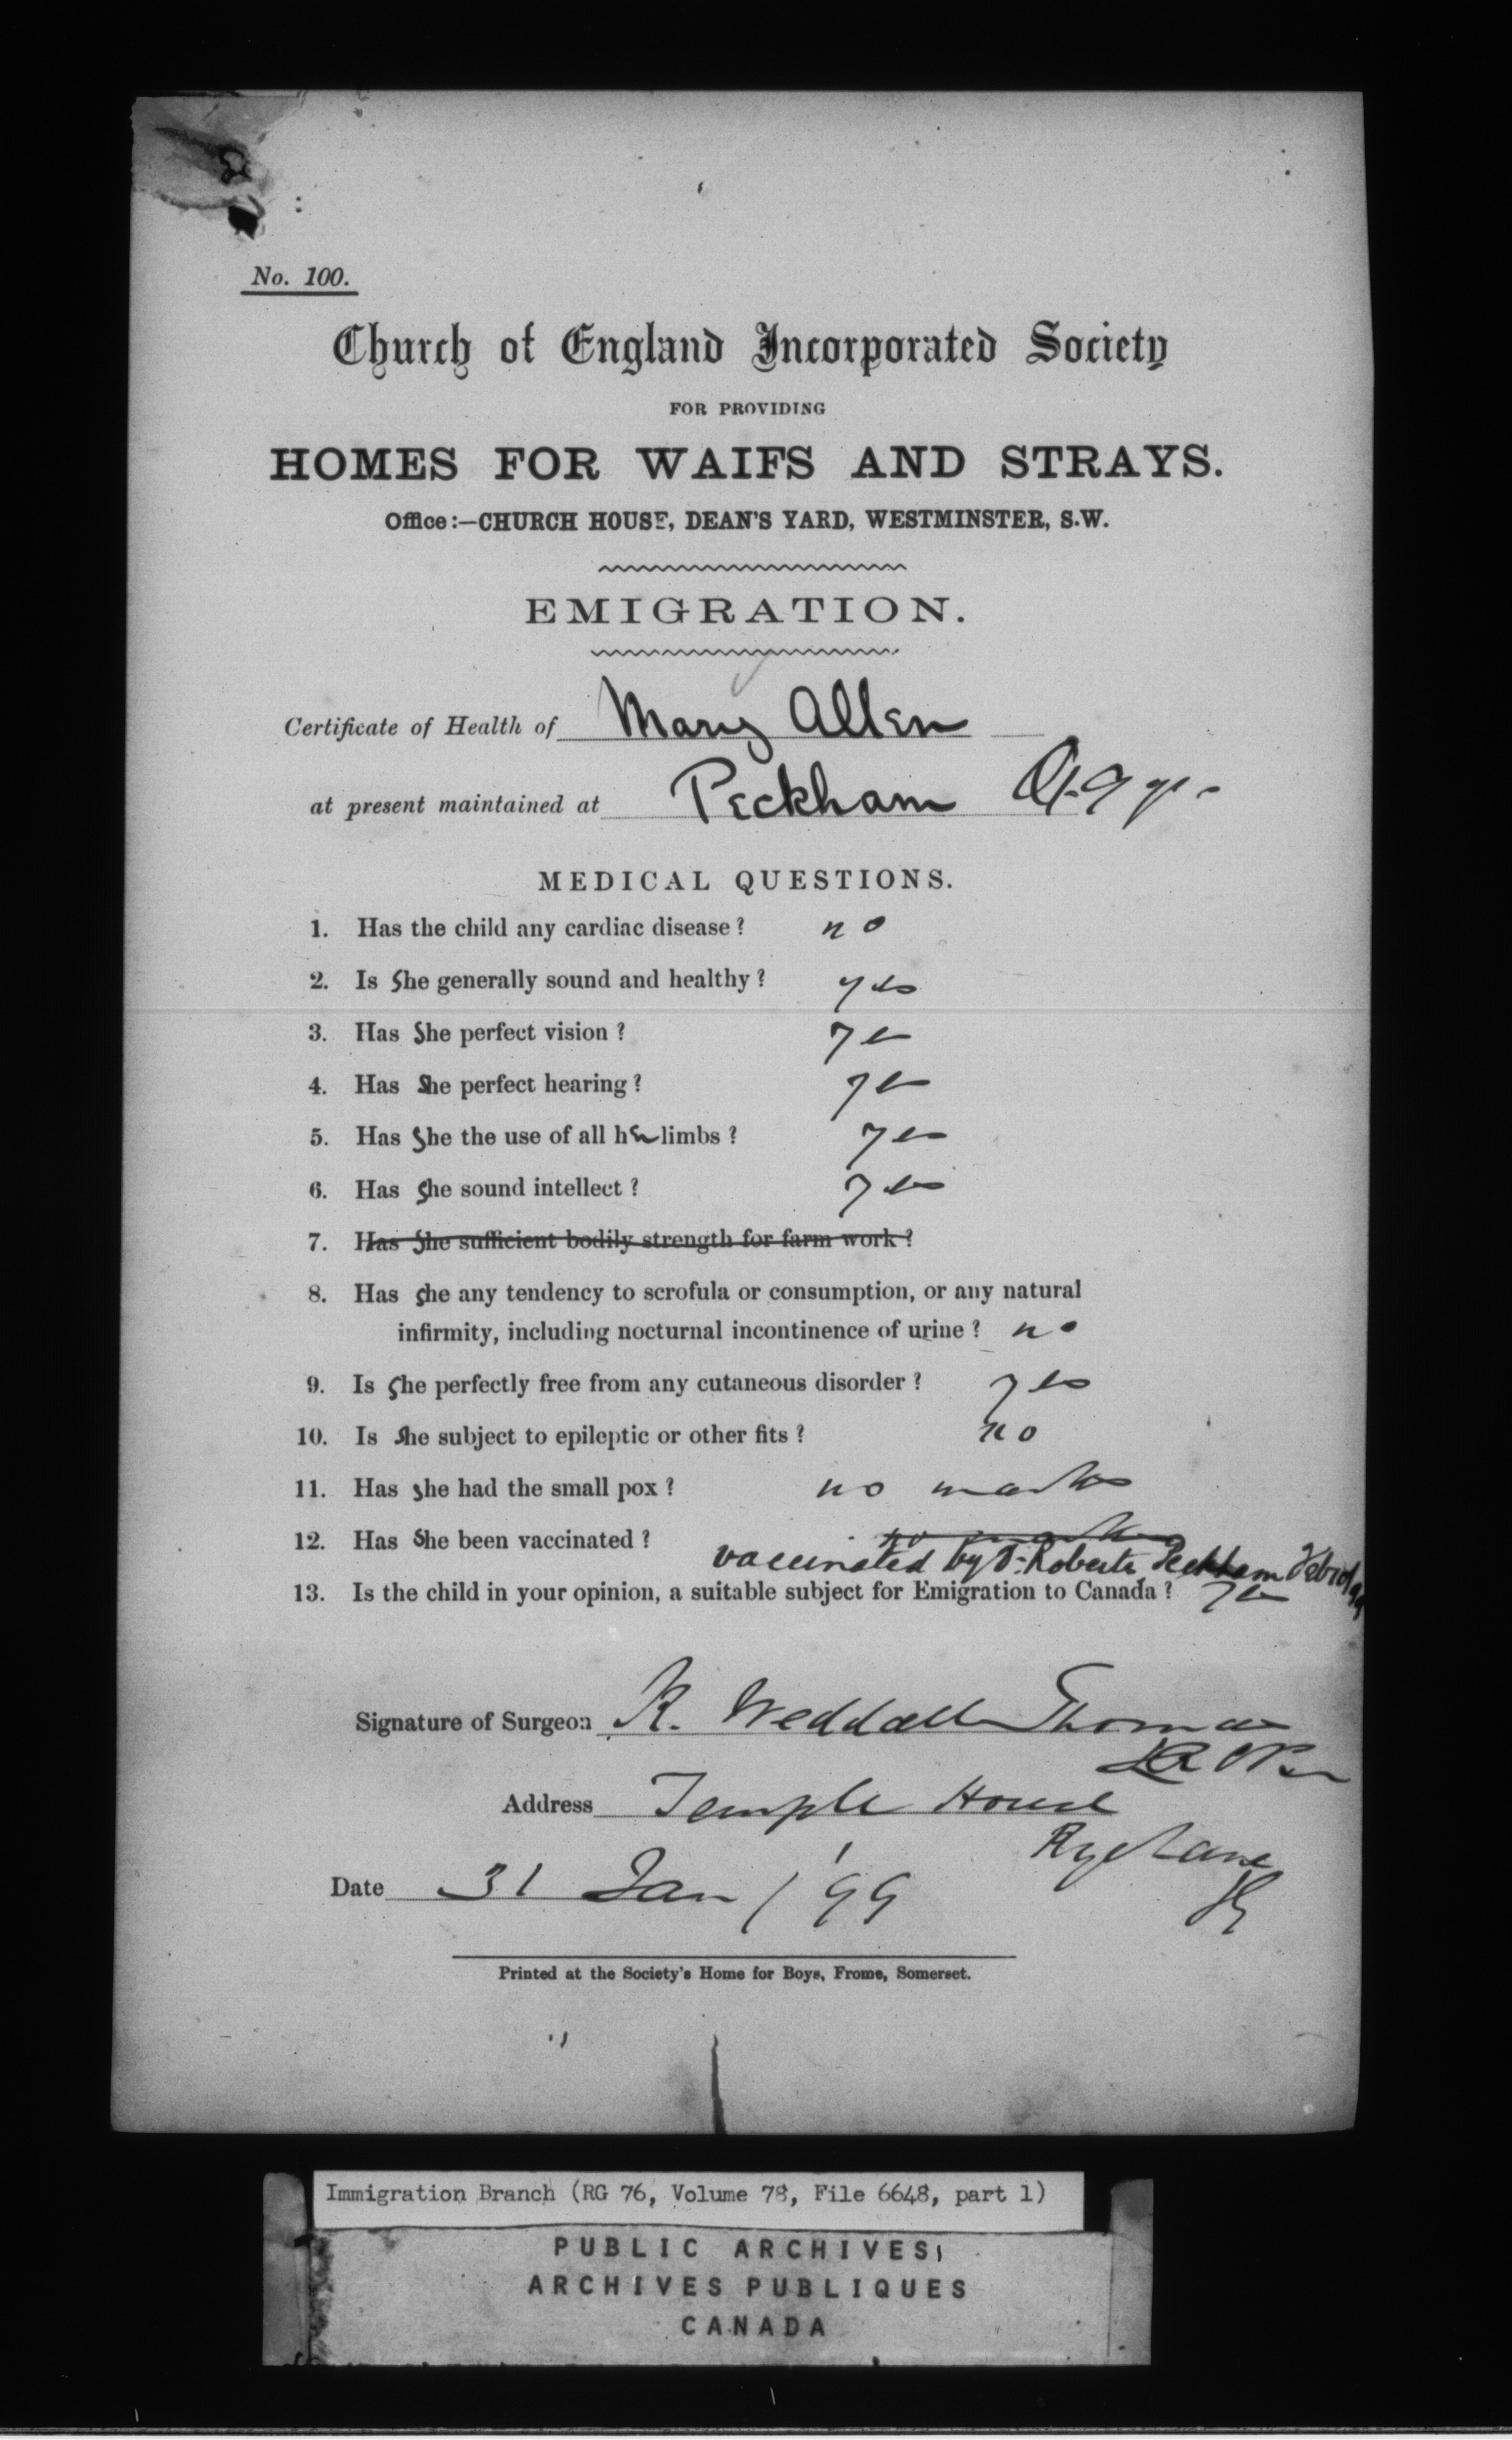 No. 100.
Church of England Incorporated Society
FOR PROVIDING
HOMES FOR WAIFS AND STRAYS.
Office:—CHURCH HOUSE, DEAN'S YARD, WESTMINSTER, S.W.
EMIGRATION.
Certificate of Health of Mary Allen
at present maintained at Peckham
MEDICAL QUESTIONS.
1. Has the child any cardiac disease? no
2. Is She generally sound and healthy? yes
3. Has She perfect vision? yes
4. Has She perfect hearing? yes
5. Has She the use of all her limbs? yes
6. Has She sound intellect? yes
7. Has She sufficient bodily strength for farm work?
8. Has She any tendency to scrofula or consumption, or any natural
infirmity, including nocturnal incontinence of urine? no
9. Is She perfectly free from any cutaneous disorder? yes
10. Is She subject to epileptic or other fits? no
11. Has She had the small pox? no marks
12. Has She been vaccinated? no marks
vaccinated by Dr. Roberts Peckham
13. Is the child in your opinion, a suitable subject for Emigration to Canada? yes
Signature of Surgeon K. Weddall Thomas
Address Temple House
Rye Lane
Date 31 Jan / '99
Printed at the Society's Home for Boys, Frome, Somerset.
Immigration Branch (RG 76, Volume 78, File 6648, part 1)
PUBLIC ARCHIVES
ARCHIVES PUBLIQUES
CANADA